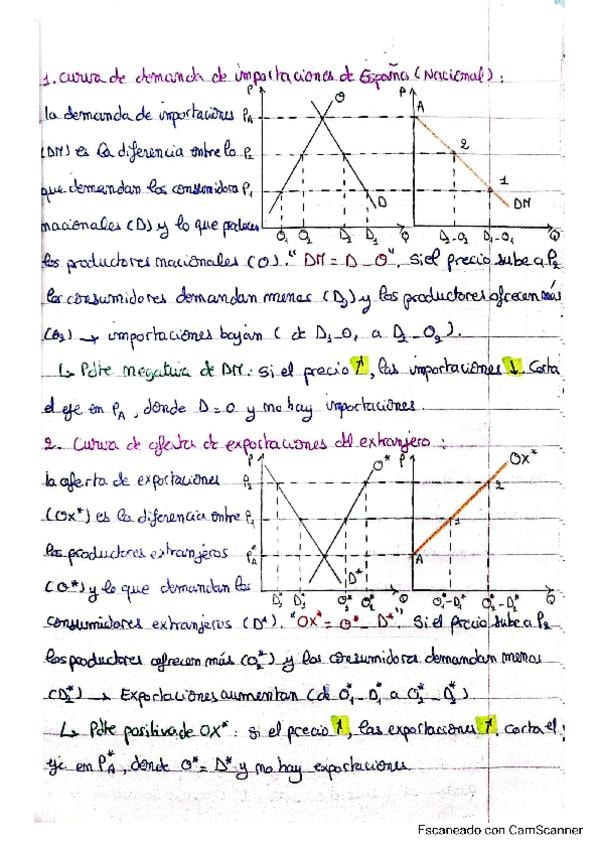 1. Curva de demanda de importaciones de España (Nacional):
la demanda de importaciones
(DM) es la diferencia entre lo
que demandan los consumidores
nacionales (D) y lo que producen
P
PA
P2
P1
O
D
O1 O2 D2 D1 Q
P
A
2
1
DM
D2-O2 D1-O1 Q
los productores nacionales (O). "DM = D - O". Si el precio sube a P2
los consumidores demandan menos (D2) y los productores ofrecen más
(O2) → importaciones bajan (de D1-O1 a D2-O2).
↳ Pdte negativa de DM: si el precio ↑, las importaciones ↓. Corta
el eje en PA, donde D=O y no hay importaciones.
2. Curva de oferta de exportaciones del extranjero:
la oferta de exportaciones
(OX*) es la diferencia entre
los productores extranjeros
(O*) y lo que demandan los
P
P2
P1
P*A
O*
D*
D*2 D*1 O*1 O*2 Q
P
OX*
2
1
A
O*1-D*1 O*2-D*2 Q
consumidores extranjeros (D*). "OX* = O* - D*". Si el precio sube a P2
los productores ofrecen más (O*2) y los consumidores demandan menos
(D*2) → Exportaciones aumentan (de O*1-D*1 a O*2-D*2)
↳ Pdte positiva de OX*: si el precio ↑, las exportaciones ↑. Corta el
eje en P*A, donde O* = D* y no hay exportaciones.
Escaneado con CamScanner